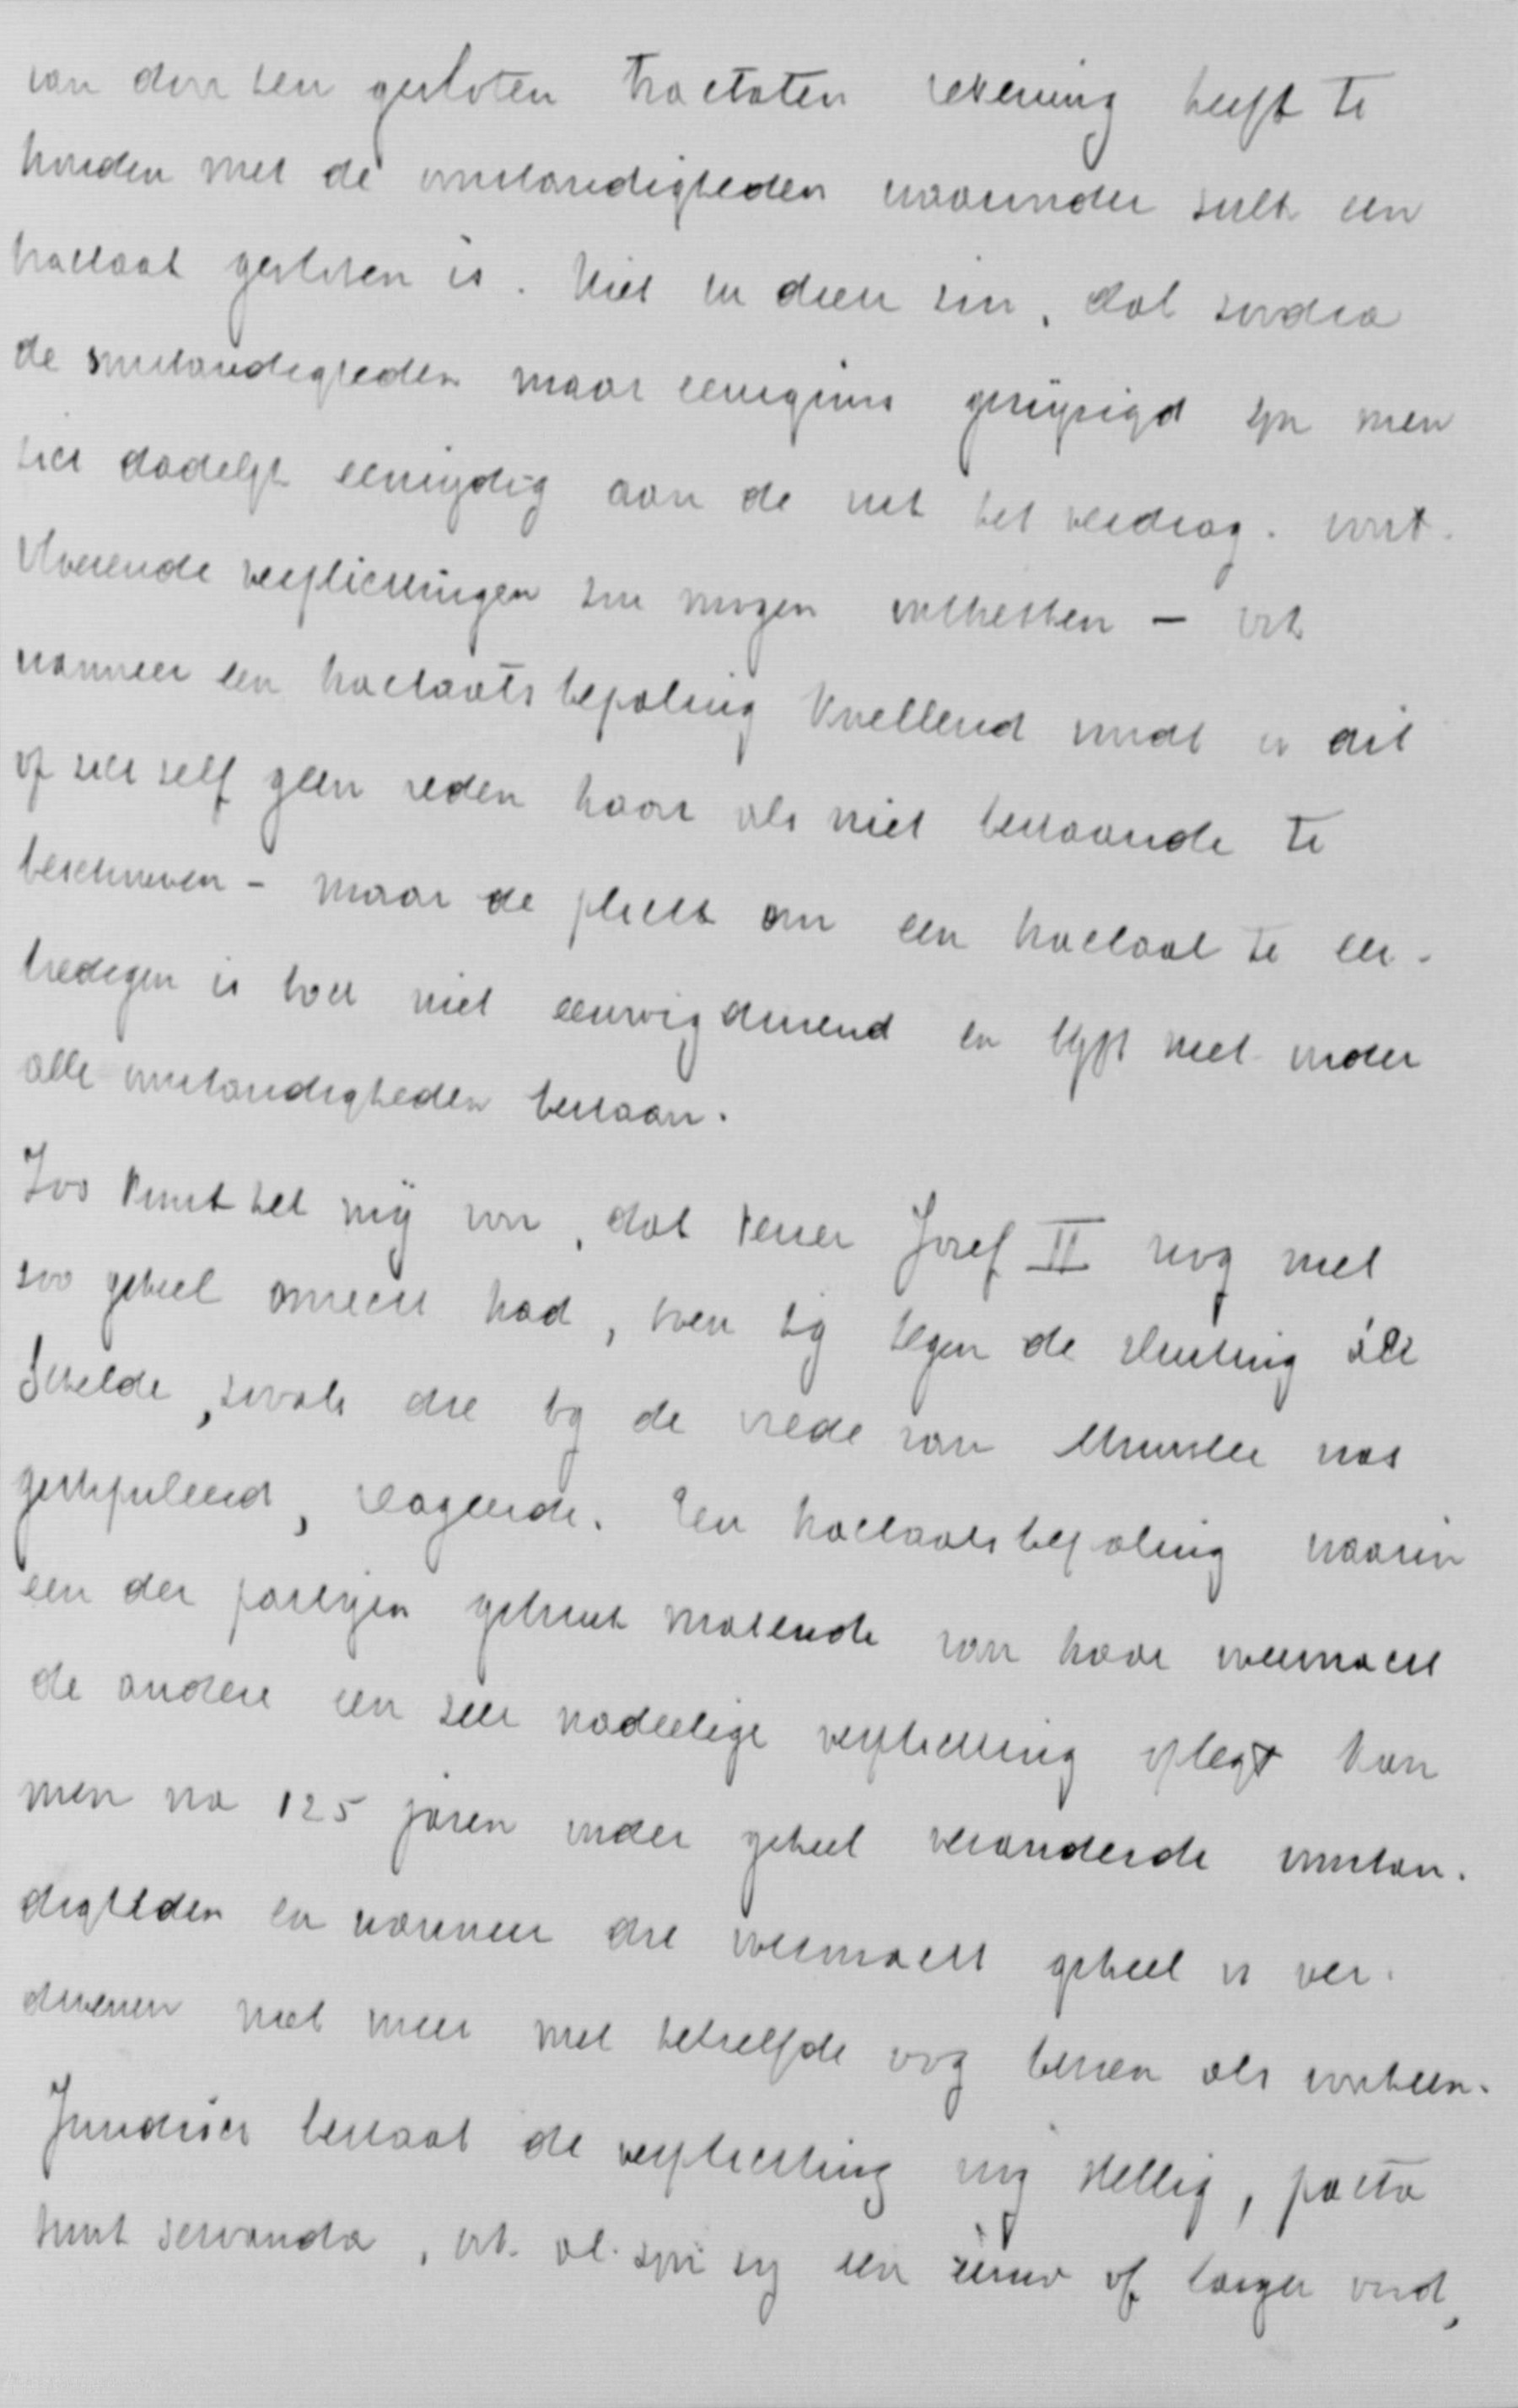 van door hen gesloten tractaten rekening heeft te
houden met de omstandigheden waaronder zulk een
tractaat gesloten is. Niet in dien zin, dat zoodra
de omstandigheden maar eenigzins gewijzigd zijn men
zich dadelijk eenzijdig aan de uit het verdrag voort-
vloeiende verplichtingen zou mogen onttrekken – ook
wanneer een tractaatsbepaling knellend wordt is dit
op zich zelf geen reden haar als niet bestaande te
beschouwen – maar de plicht om een tractaat te eer-
biedigen is toch niet eeuwigdurend en blijft niet onder
alle omstandigheden bestaan.
Zoo komt het mij voor, dat keizer Jozef II nog niet
zoo geheel onrecht had, toen hij tegen de sluiting der
Schelde, zooals die bij de vrede van Munster was
gestipuleerd, reageerde. Een tractaatsbepaling waarin
een der partijen gebruik makende van haar overmacht
de andere een zeer nadeelige verplichting oplegt kan
men na 125 jaren onder geheel veranderde omstan-
digheden en wanneer die overmacht geheel is ver-
dwenen niet meer met hetzelfde oog bezien als voorheen.
Juridisch bestaat de verplichting nog stellig, pacta
sunt servanda, ook al zijn zij een eeuw of langer oud,